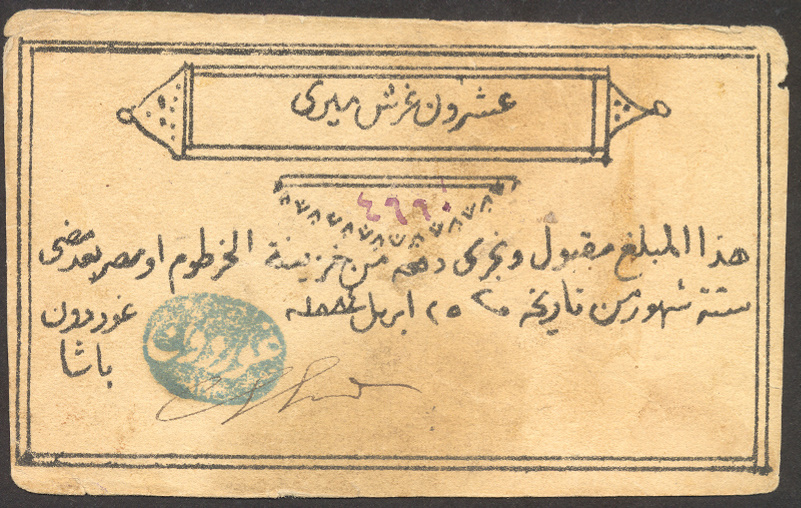 عشرون غرش ميرى
هذا المبلغ مقبول ويجرى دفعه من خزينة الخرطوم او مصر بعد مضى
ستة شهور من تاريخه ٢٥ ابريل ١٨٨٤
غوردون
باشا
غوردون